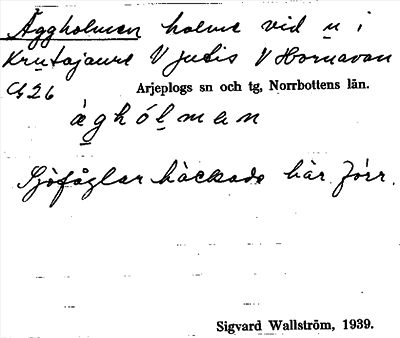 Äggholmen holme vid u i
Krutajaure V Jutis V Hornavan
G26 Arjeplogs sn och tg, Norrbottens län.
ä̀ghólman
Sjöfåglar häckade här förr.
Sigvard Wallström, 1939.